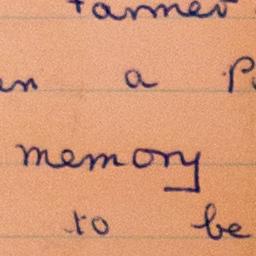 farmer
a
memory
to be